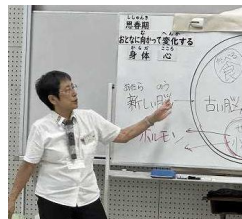 ししゅんき
思春期
おとなに向かって変化する
からだ こころ
身体 心
あたら のう
新しい脳
古い脳
ホルモン